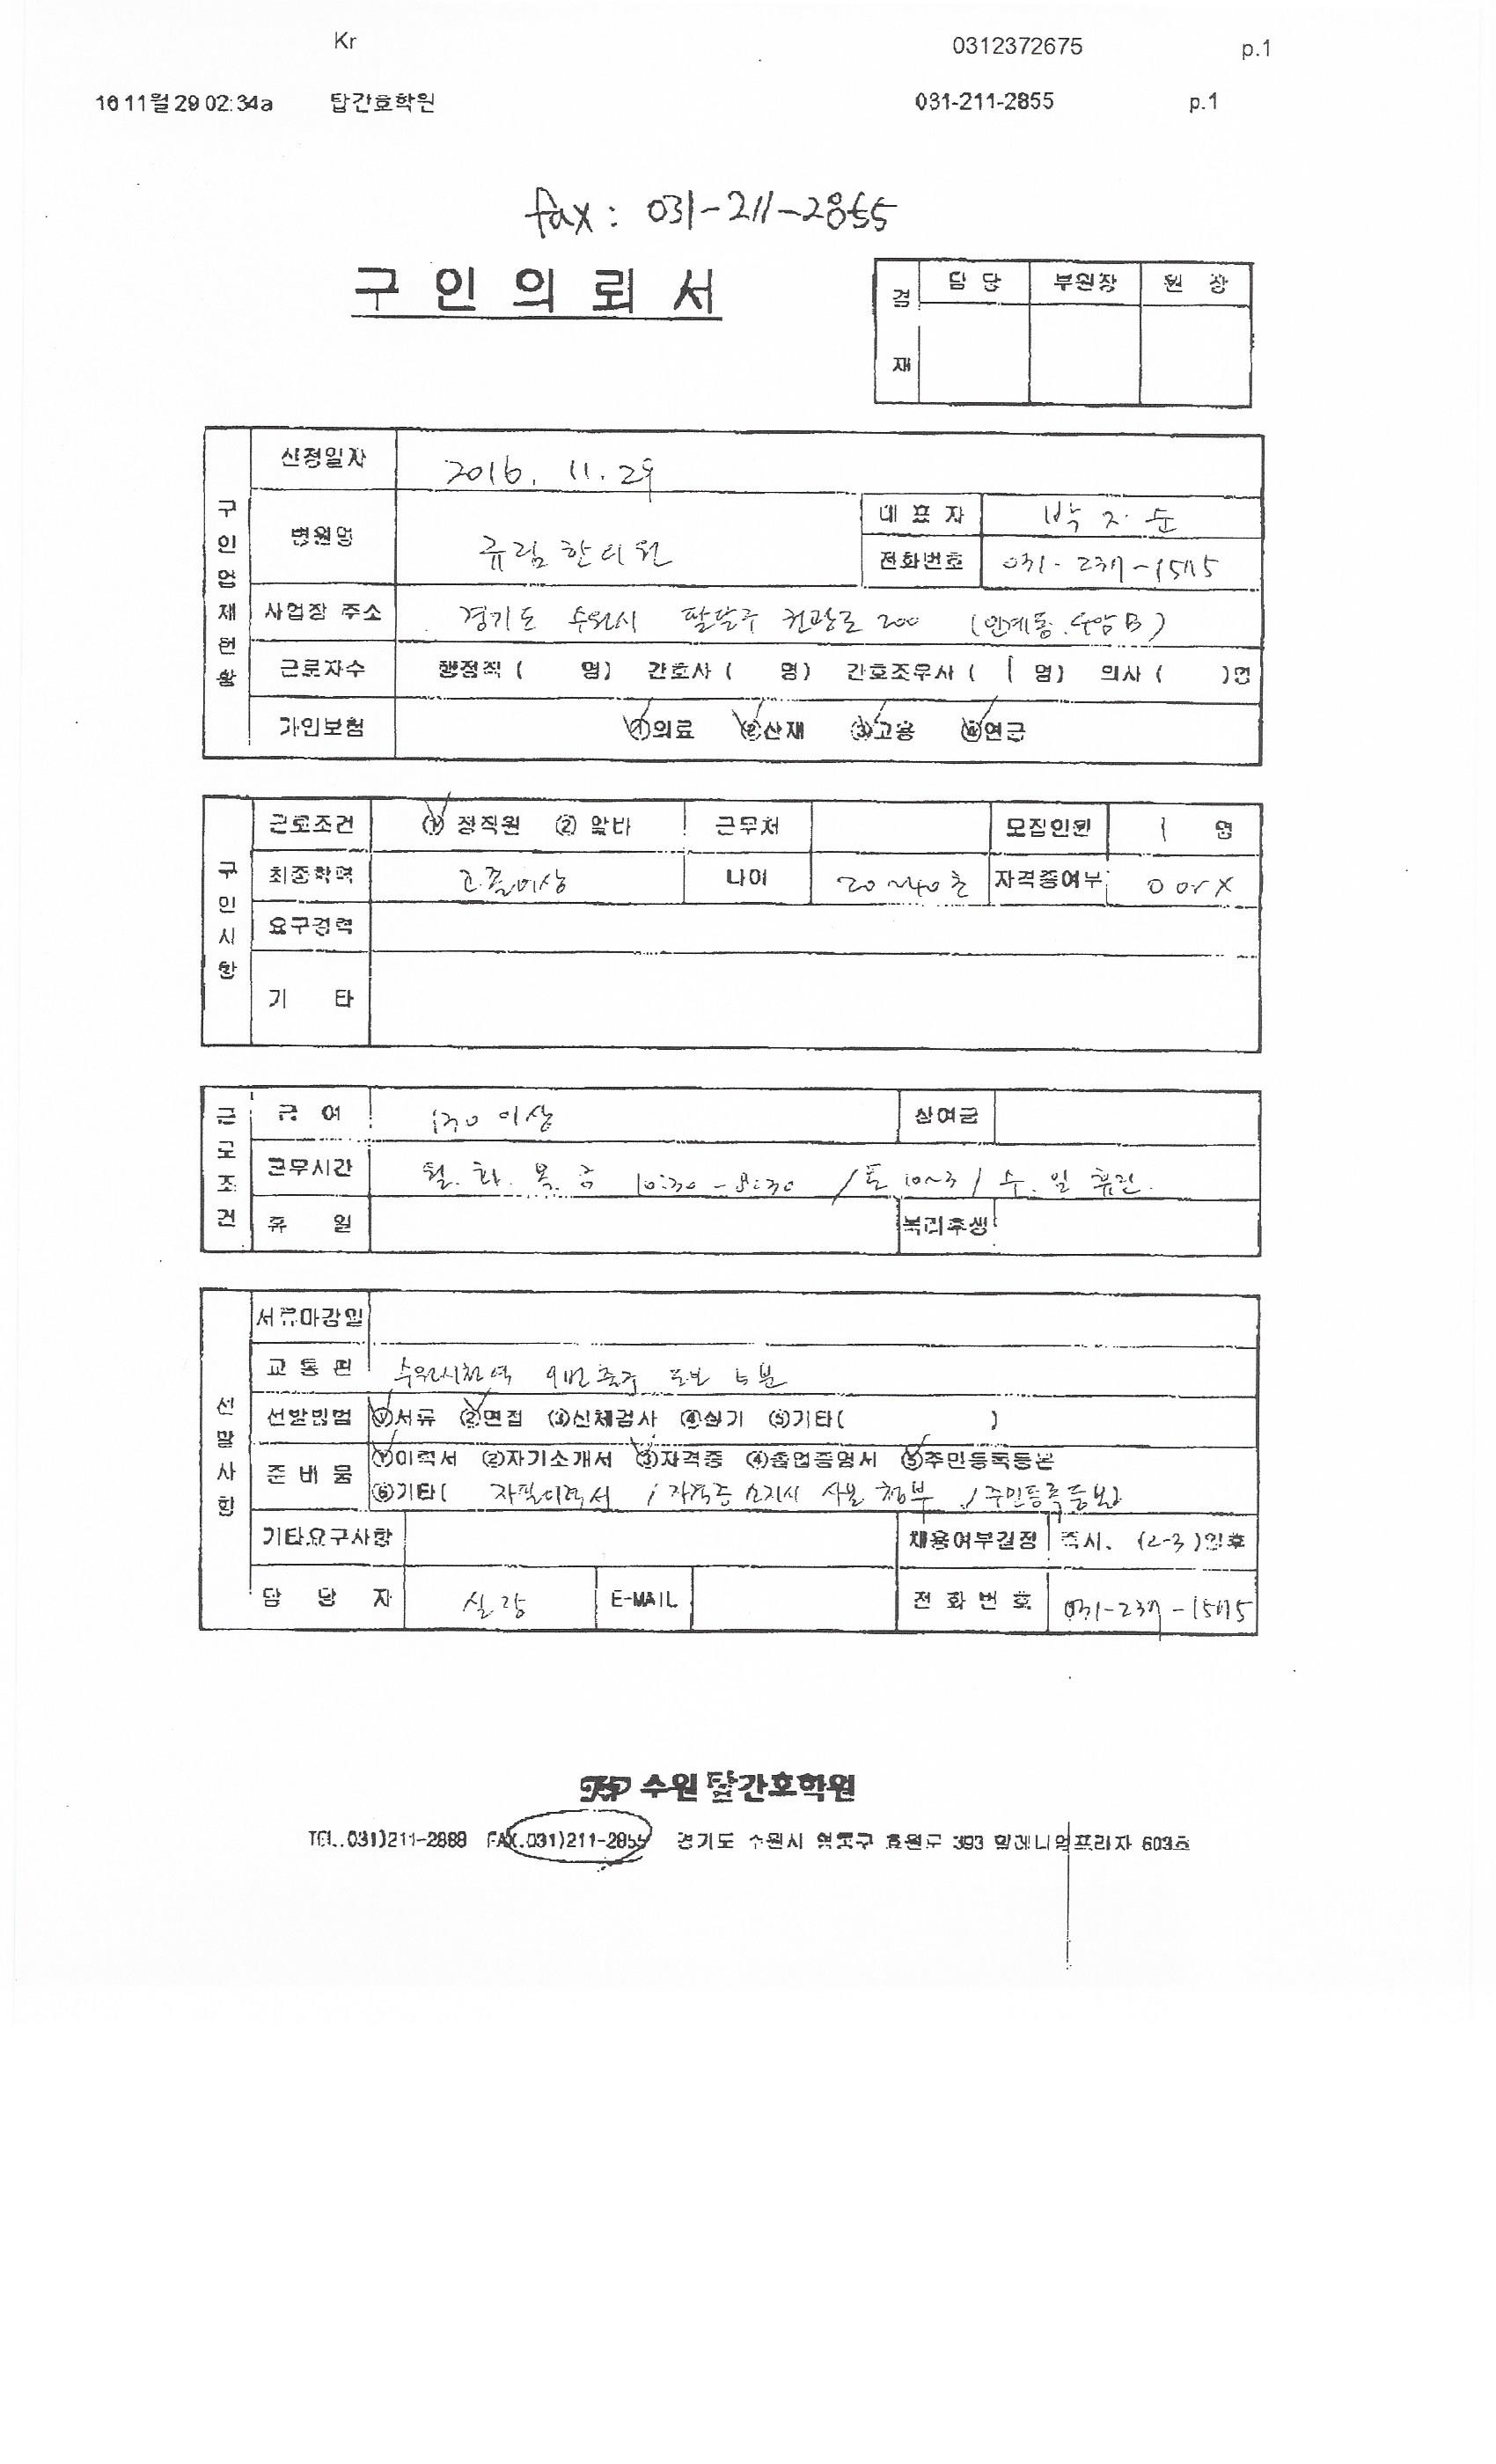 Kr 0312372675 p.1
16 11월 29 02:34a 탑간호학원 031-211-2855 p.1
fax : 031-211-2855
구 인 의 뢰 서
결 재 담 당 부원장 원 장
구 인 업 체 현 황
신청일자 2016. 11. 29
병원명 규림한의원 대 표 자 박 지 순
전화번호 031-237-1575
사업장 주소 경기도 수원시 팔달구 권광로 200 (인계동.수암B)
근로자수 행정직 ( 명) 간호사 ( 명) 간호조무사 ( 1 명) 의사 ( )명
가입보험 ①의료 ②산재 ③고용 ④연금
구 인 사 항
근로조건 ① 정직원 ② 알바 근무처 모집인원 1 명
최종학력 고졸이상 나이 20~40초 자격증여부 O or X
요구경력
기 타
근 로 조 건
급 여 130 이상 상여금
근무시간 월. 화. 목. 금 10:30-8:30 /토 10~3 / 수. 일 휴진.
휴 일 복리후생
선 발 사 항
서류마감일
교 통 편 수원시청역 9번 출구 도보 5분
선발방법 ①서류 ②면접 ③신체검사 ④실기 ⑤기타( )
준 비 물 ①이력서 ②자기소개서 ③자격증 ④졸업증명서 ⑤주민등록등본
⑥기타( 자필이력서 / 자격증 소지시 사본 첨부 / 주민등록등본)
기타요구사항 채용여부결정 즉시. (2-3)일후
담 당 자 실장 E-MAIL 전 화 번 호 031-237-1575
수원 탑간호학원
TEL.031)211-2888 FAX.031)211-2855 경기도 수원시 영통구 효원로 393 밀레니엄프라자 603호